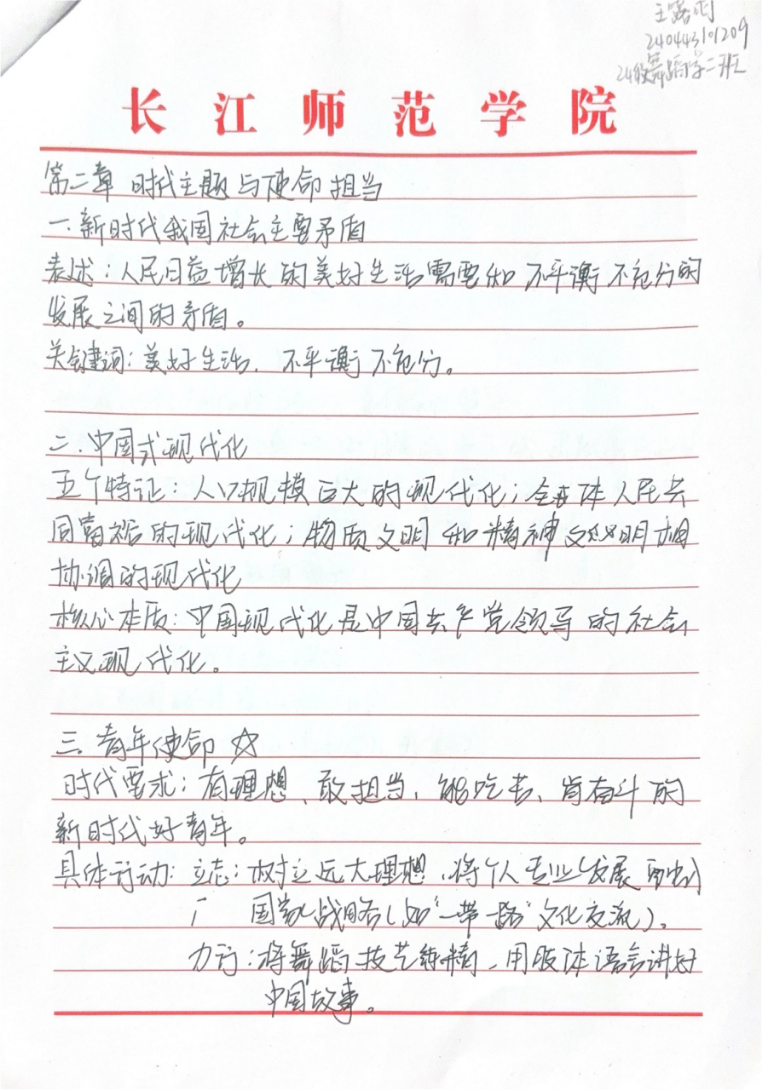 王露雨
240443101209
24级舞蹈学二班
长江师范学院
第二章 时代主题与使命担当
一.新时代我国社会主要矛盾
表述：人民日益增长的美好生活需要和不平衡不充分的
发展之间的矛盾。
关键词：美好生活、不平衡不充分。
二.中国式现代化
五个特征：人口规模巨大的现代化；全体人民共
同富裕的现代化；物质文明和精神文明相
协调的现代化
核心本质：中国现代化是中国共产党领导的社会
主义现代化。
三.青年使命 ☆
时代要求：有理想、敢担当、能吃苦、肯奋斗的
新时代好青年。
具体行动：立志：树立远大理想，将个人专业发展
国家战略(如"一带一路"文化交流)。
力行：将舞蹈技艺练精，用肢体语言讲好
中国故事。